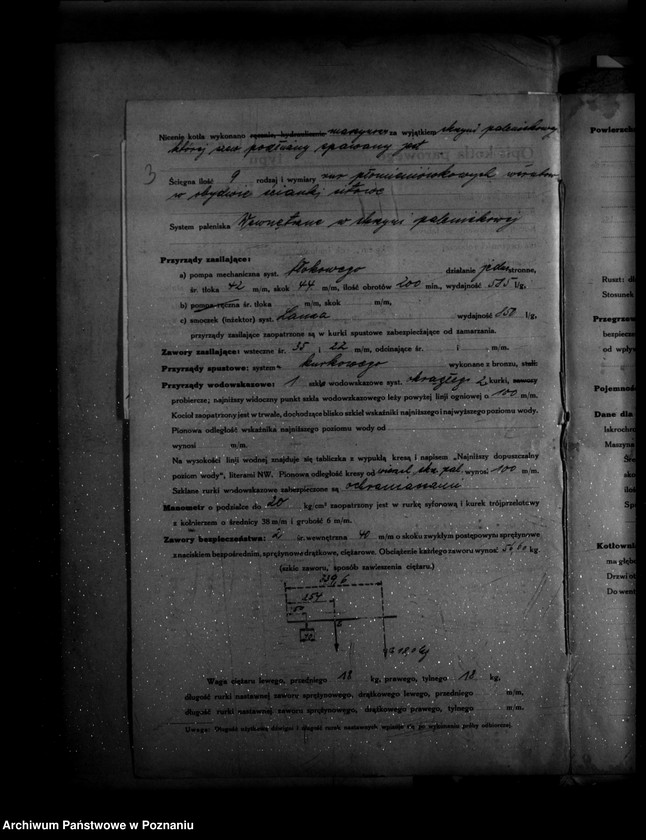 Nitenie kotła wykonano ręcznie, hydraulicznie maszynowo za wyjątkiem skrzyni paleniskowej
której szew podłużny spawany jest
3
Ściegna ilość 9 rodzaj i wymiary rur płomieniówkowych
w obydwie ścianki sitowe
System paleniska Wewnętrzne w skrzyni paleniskowej
Przyrządy zasilające:
a) pompa mechaniczna syst. tłokowego działanie jednostronne,
śr. tłoka 42 m/m, skok 44 m/m, ilość obrotów 200 min., wydajność 585 l/g,
b) pompa ręczna śr. tłoka m/m, skok m/m,
c) smoczek (inżektor) syst. Lanza wydajność 850 l/g,
przyrządy zasilające zaopatrzone są w kurki spustowe zabezpieczające od zamarzania.
Zawory zasilające: wsteczne śr. 35 i 22 m/m, odcinające śr. i m/m.
Przyrządy spustowe: system kurkowego wykonane z bronzu, stali:
Przyrządy wodowskazowe: 1 szkło wodowskazowe syst. okrągłe 2 kurki, zawory
probiercze; najniższy widoczny punkt szkła wodowskazowego leży powyżej linji ogniowej o 100 m/m.
Kocioł zaopatrzony jest w trwałe, dochodzące blisko szkieł wskaźniki najniższego i najwyższego poziomu wody.
Pionowa odległość wskaźnika najniższego poziomu wody od
wynosi m/m.
Na wysokości linji wodnej znajduje się tabliczka z wypukłą kresą i napisem „Najniższy dopuszczalny
poziom wody", literami NW. Pionowa odległość kresy od wierzch. skrz. pal. wynosi 100 m/m.
Szklane rurki wodowskazowe zabezpieczone są ochraniaczami
Manometr o podziałce do 20 kg/cm² zaopatrzony jest w rurkę syfonową i kurek trójprzelotowy
z kołnierzem o średnicy 38 m/m i grubość 6 m/m.
Zawory bezpieczeństwa: 2 śr. wewnętrzna 40 m/m o skoku zwykłym postępowym sprężynowe
z naciskiem bezpośrednim, sprężynowe drążkowe, ciężarowe. Obciążenie każdego zaworu wynosi kg.
(szkic zaworu, sposób zawieszenia ciężaru.)
739,6
254
50
Waga ciężaru lewego, przedniego 18 kg, prawego, tylnego 18 kg,
długość rurki nastawnej zaworu sprężynowego, drążkowego lewego, przedniego m/m,
długość rurki nastawnej zaworu sprężynowego, drążkowego prawego, tylnego m/m.
Uwaga: Długość użytkową dźwigni i długość rurek nastawnych wpisuje się po wykonaniu próby odbiorczej.
Powierzch
Ruszt: dł
Stosunek
Przegrzew
bezpiecze
od wpływ
Pojemność
Dane dla
Iskrochr
Maszyna
Śr
sko
iloś
Sp
Kotłowni
ma głębo
Drzwi ot
Do went
Archiwum Państwowe w Poznaniu